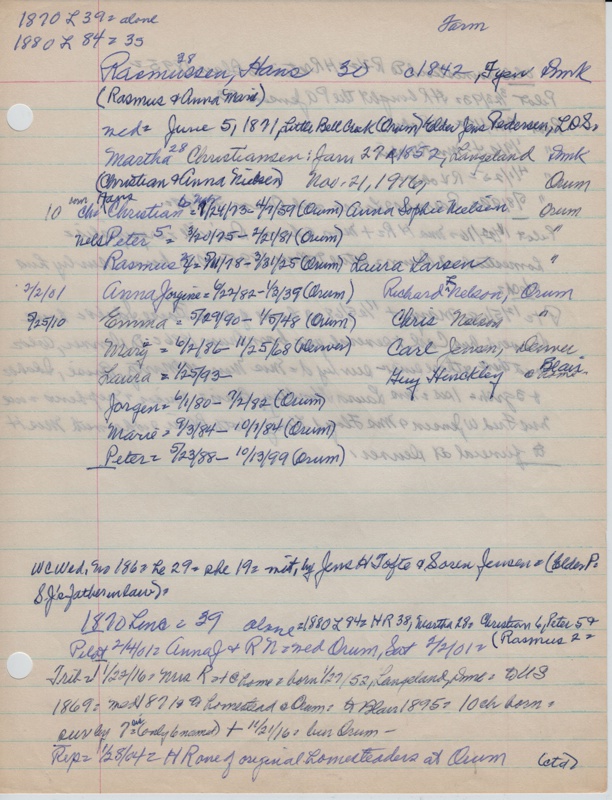 1870 L 39 = alone
Farm
1880 L 84 = 35
Rasmussen, Hans 38 30 c1842, Fyen Dmk
(Rasmus & Anna Marie)
med = June 5, 1871, Little Bell Creek (Orum) Elder Jens Pedersen, LDS =
Martha 28 Christiansen: Jan 27 1852, Langeland Dmk
(Christian & Anna Nielsen) Nov. 21, 1916 Orum
10 ch = Hans Christian 6 = 4/24/73 - 4/7/59 (Orum) Anna Sophie Nielsen Orum
Nels Peter 5 = 3/20/75 - 2/21/81 (Orum) "
Rasmus 2 = /78 - 3/31/25 (Orum) Laura Larsen "
2/2/01 Anna Jorgine = 6/22/82 - 1/3/39 (Orum) Richard Nelson, Orum
5/25/10 Emma = 5/29/90 - 1/5/48 (Orum) Chris Nelson "
Mary = 6/2/86 - 11/25/68 (Denver) Carl Jensen, Denver
Laura = 1/25/93 - Guy Hinckley Blair
Jorgen = 6/1/80 - 7/2/82 (Orum)
Marie = 9/3/84 - 10/1/84 (Orum)
Peter = 5/23/88 - 10/13/99 (Orum)
WC Wed, no 186 = he 29 = she 19 = wit, by Jens H Tofte & Soren Jensen = (Elder P.
S J's father in law) =
1870 Line = 39 alone = 1880 L 84 = H R 38, Martha 28 = Christian 6, Peter 5 &
(Rasmus 2 =
Pilot 2/4/01 = Anna J & R N = med Orum, Sat 2/2/01 =
Trib = 11/22/16 = Mrs R = + C home = born 1/27/52, Langeland, Dmk = to US
1869 = med 1871 = homestead @ Orum = to Blair 1895 = 10 ch born =
sur by 7 = (only 6 named) + 11/21/16 = bur Orum -
Rep = 1/28/04 = H R one of original homesteaders at Orum (ctd)